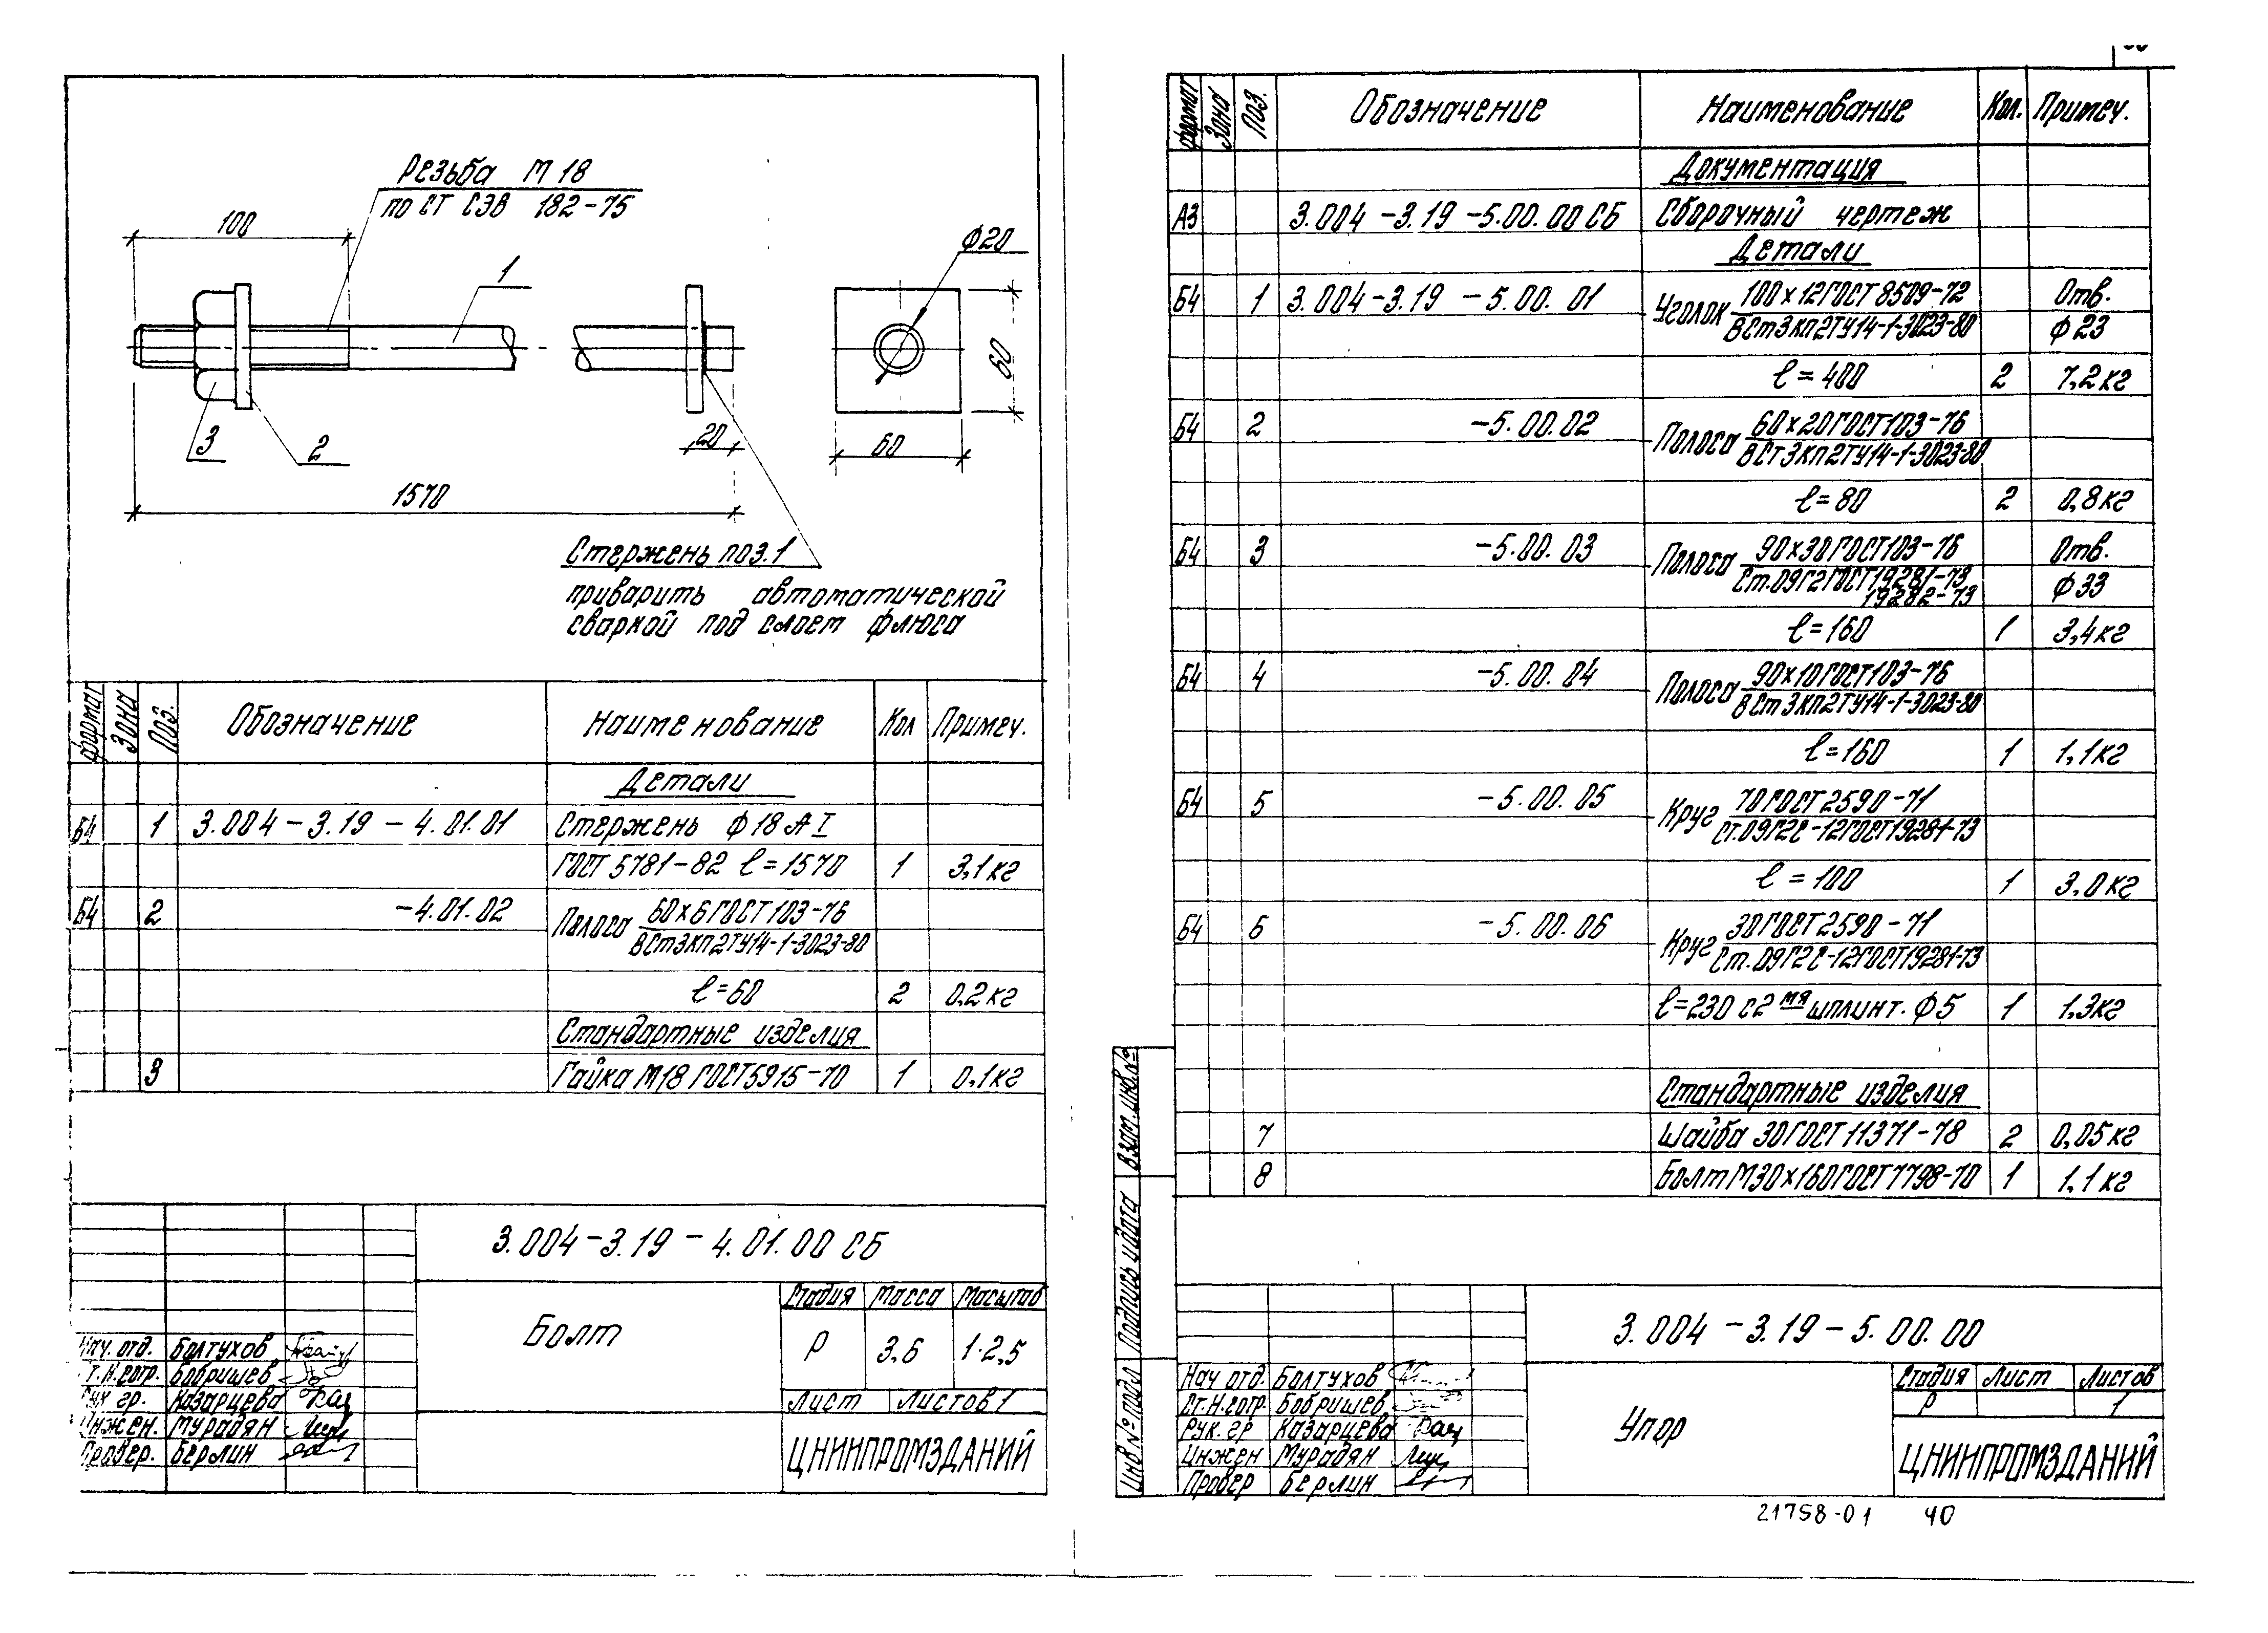 Резьба М 18
по СТ СЭВ 182-75
100
1
ф20
60
3
2
20
60
1570
Стержень поз.1
приварить автоматической
сваркой под слоем флюса
формат Зона Поз. Обозначение Наименование Кол Примеч.
Детали
Б4 1 3.004-3.19-4.01.01 Стержень ф18 АI
ГОСТ 5781-82 ℓ=1570 1 3,1кг
Б4 2 -4.01.02 Полоса 60х6ГОСТ103-76
ВСт3кп2ТУ14-1-3023-80
ℓ=60 2 0,2кг
Стандартные изделия
3 Гайка М18 ГОСТ5915-70 1 0,1кг
3.004-3.19-4.01.00 СБ
Болт
Стадия Масса Масштаб
Р 3,6 1:2,5
Лист Листов 1
ЦНИИПРОМЗДАНИЙ
Нач. отд. Болтухов
Ст.Н.сотр. Бобришев
Рук гр. Казарцева
Инжен. Мурадян
Провер. Берлин
формат Зона Поз. Обозначение Наименование Кол. Примеч.
Документация
А3 3.004-3.19-5.00.00 СБ Сборочный чертеж
Детали
Б4 1 3.004-3.19-5.00.01 Уголок 100х12ГОСТ 8509-72 Отв.
ВСт3кп2ТУ14-1-3023-80 ф23
ℓ=400 2 7,2кг
Б4 2 -5.00.02 Полоса 60х20ГОСТ103-76
ВСт3кп2ТУ14-1-3023-80
ℓ=80 2 0,8кг
Б4 3 -5.00.03 Полоса 90х30ГОСТ103-76 Отв.
Ст.09Г2ГОСТ19281-73 ф33
19282-73
ℓ=160 1 3,4кг
Б4 4 -5.00.04 Полоса 90х10ГОСТ103-76
ВСт3кп2ТУ14-1-3023-80
ℓ=160 1 1,1кг
Б4 5 -5.00.05 Круг 70ГОСТ2590-71
Ст.09Г2С-12ГОСТ19281-73
ℓ=100 1 3,0кг
Б4 6 -5.00.06 Круг 30ГОСТ2590-71
Ст.09Г2С-12ГОСТ19281-73
ℓ=230 с2мя шплинт. ф5 1 1,3кг
Стандартные изделия
7 Шайба 30ГОСТ11371-78 2 0,05кг
8 БолтМ30х160ГОСТ7798-70 1 1,1кг
Взам. инв.№
Подпись и дата
Инв № подл
3.004-3.19-5.00.00
Нач отд. Болтухов
Ст.Н.сотр. Бобришев
Рук. гр Казарцева
Инжен Мурадян
Провер Берлин
Упор
Стадия Лист Листов
Р 1
ЦНИИПРОМЗДАНИЙ
21758-01 40